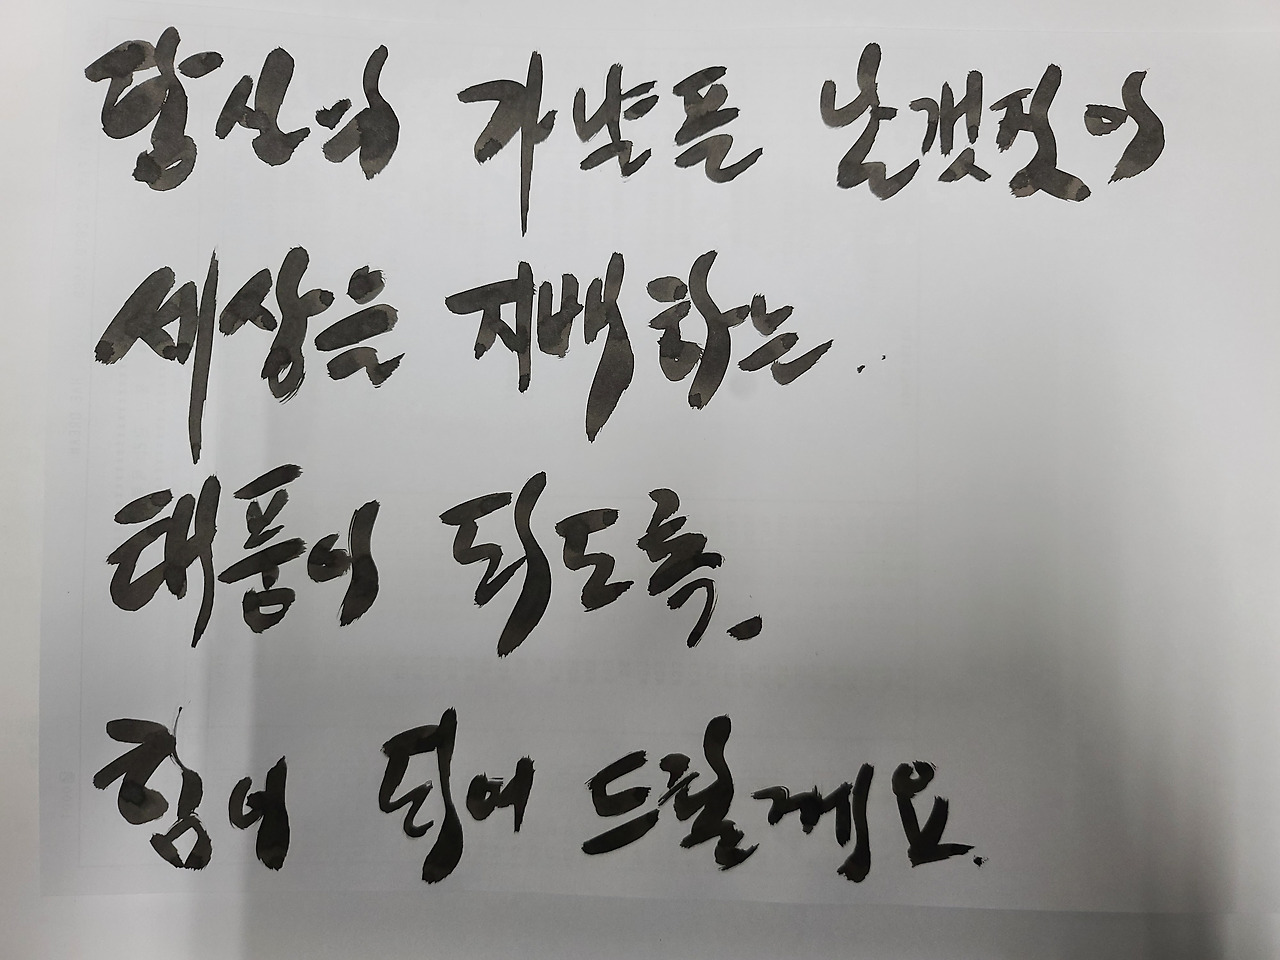 당신의 가냘픈 날갯짓이
세상은 지배하는.
태풍이 되도록.
힘이 되어 드릴께요.